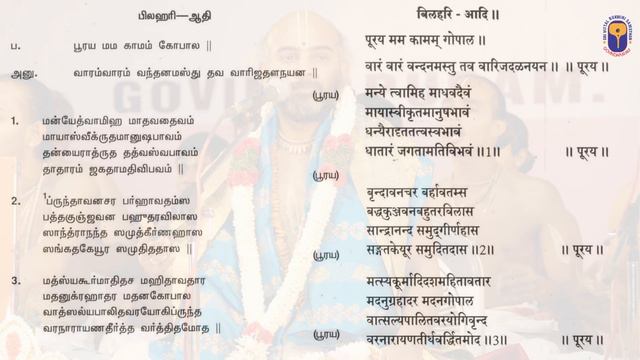 பிலஹரி—ஆதி
ப. பூரய மம காமம் கோபால ||
அனு. வாரம்வாரம் வந்தனமஸ்து தவ வாரிஜதளநயன ||
(பூரய)
1. மன்யேத்வாமிஹ மாதவதைவம்
மாயாஸ்வீக்ருதமானுஷபாவம்
தன்யைராத்ருத தத்வஸ்வபாவம்
தாதாரம் ஜகதாமதிவிபவம் ||
(பூரய)
2. ¹ப்ருந்தாவனசர பர்ஹாவதம்ஸ
பத்தகுஞ்ஜவன பஹுதரவிலாஸ
ஸாந்த்ராநந்த ஸமுத்கீர்ணஹாஸ
ஸங்கதகேயூர ஸமுதிததாஸ ||
(பூரய)
3. மத்ஸ்யகூர்மாதிதச மஹிதாவதார
மதனுக்ரஹாதர மதனகோபால
வாத்ஸல்யபாலிதவரயோகிப்ருந்த
வரநாராயணதீர்த்த வர்த்திதமோத ||
(பூரய)
बिलहरि - आदि ॥
पूरय मम कामम् गोपाल ॥
वारं वारं वन्दनमस्तु तव वारिजदळनयन ॥ ॥ पूरय ॥
मन्ये त्वामिह माधवदैवं
मायास्वीकृतमानुषभावं
धन्यैरादृततत्वस्वभावं
धातारं जगतामतिविभवं ॥1॥ ॥ पूरय ॥
बृन्दावनचर बर्हावतम्स
बद्धकुञ्जवनबहुतरविलास
सान्द्रानन्द समुद्गीर्णहास
सङ्गतकेयूर समुदितदास ॥2॥ ॥ पूरय ॥
मत्स्यकूर्मादिदशमहितावतार
मदनुग्रहादर मदनगोपाल
वात्सल्यपालितवरयोगिवृन्द
वरनारायणतीर्थवर्द्धितमोद ॥3॥ ॥ पूरय ॥